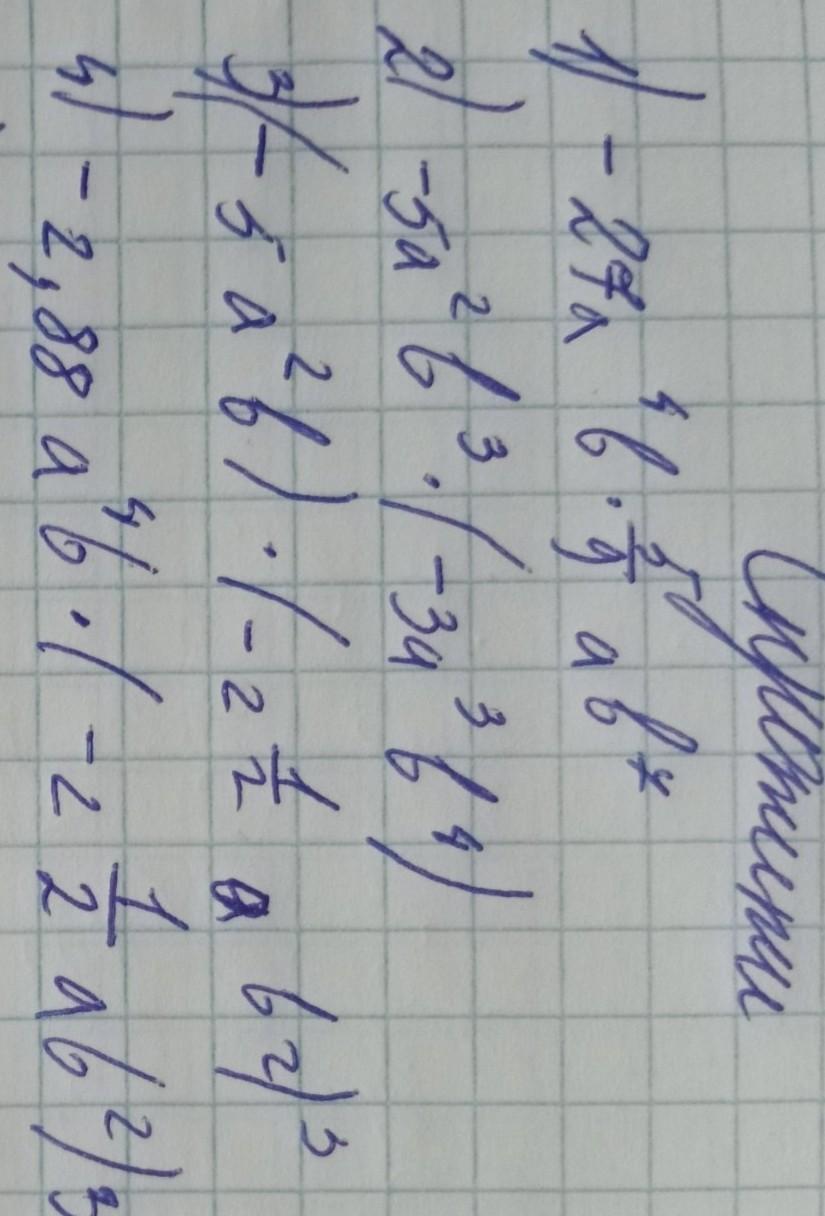 Спростити
1) - 27a⁴b · 5/9 ab⁷
2) -5a²b³ · (-3a³b⁴)
3) (-5a²b) · (-2 1/2 a b²)³
4) -2,88 a⁴b · (-2 1/2 ab²)³